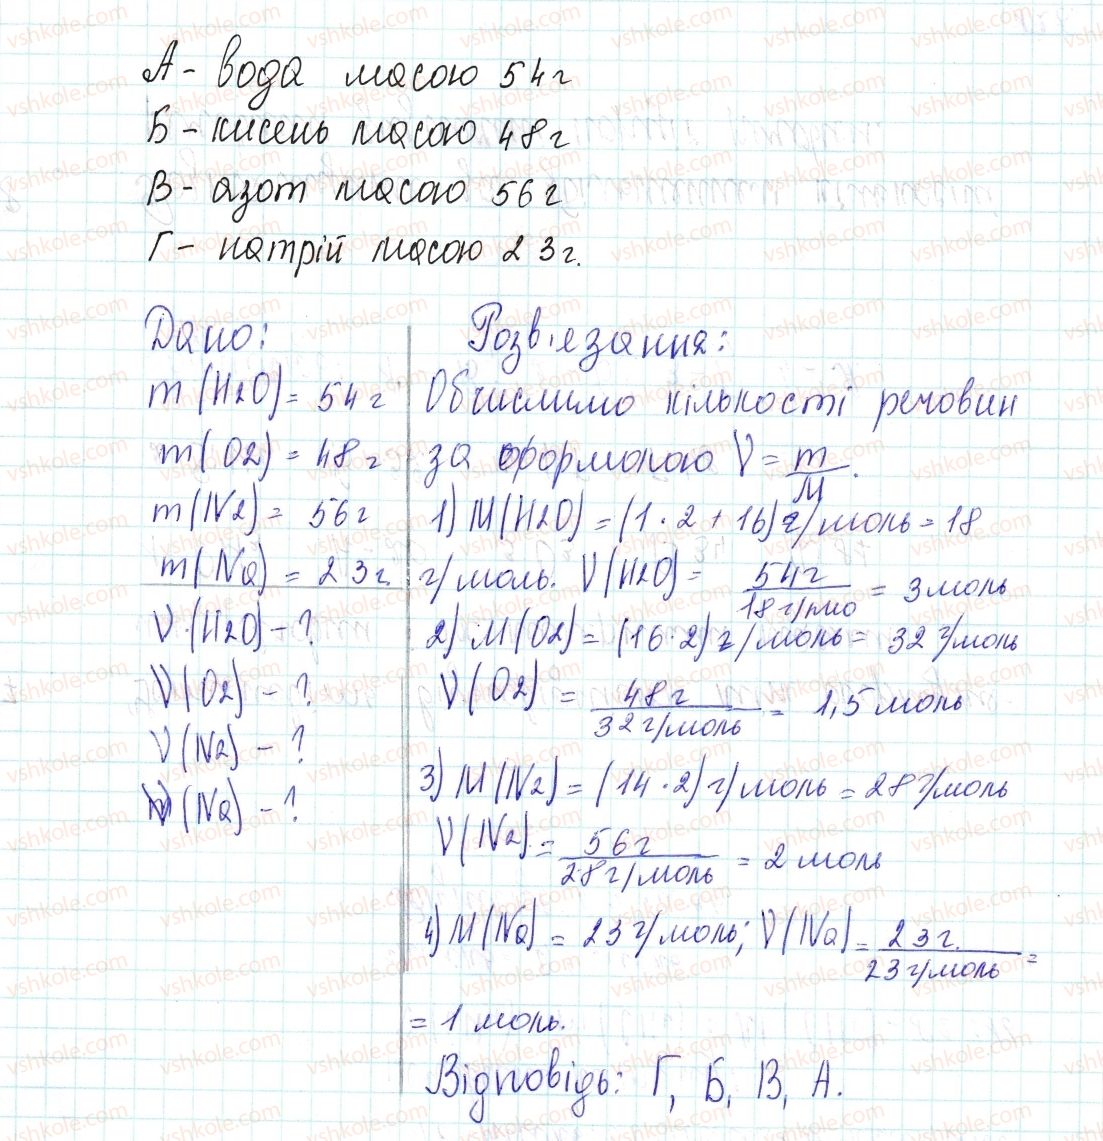 А - вода масою 54г
Б - кисень масою 48г
В - азот масою 56г
Г - натрій масою 23г.
Дано:
m(H2O) = 54г
m(O2) = 48г
m(N2) = 56г
m(Na) = 23г
V(H2O) - ?
V(O2) - ?
V(N2) - ?
V(Na) - ?
Розв'язання:
Обчислимо кількості речовин
за формолою V = m/M.
1) M(H2O) = (1·2+16)г/моль = 18
г/моль. V(H2O) = 54г/18г/мо = 3моль
2) M(O2) = (16·2)г/моль = 32г/моль
V(O2) = 48г/32г/моль = 1,5моль
3) M(N2) = (14·2)г/моль = 28г/моль
V(N2) = 56г/28г/моль = 2моль
4) M(Na) = 23г/моль; V(Na) = 23г./23г/моль =
= 1моль.
Відповідь: Г, Б, В, А.
vshkole.com